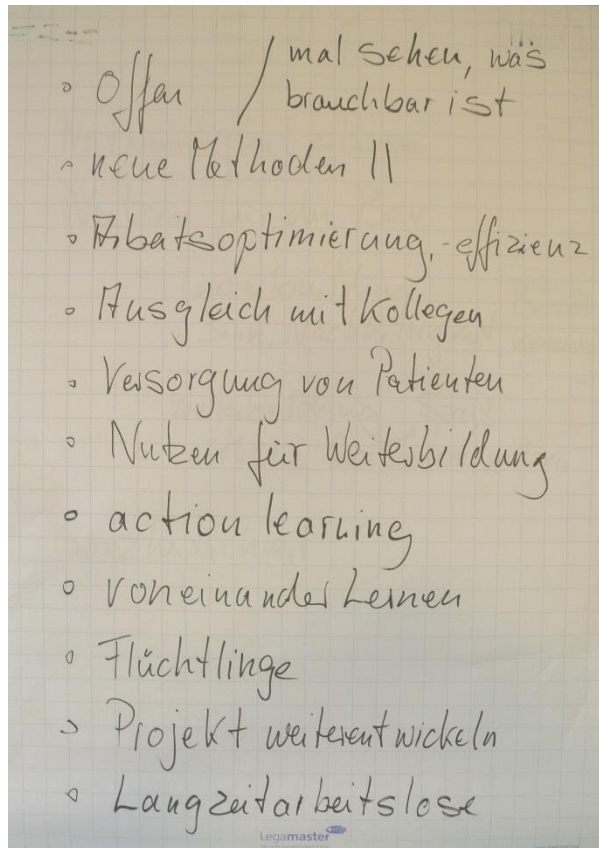 ◦ Offen / mal sehen, was
brauchbar ist
◦ neue Methoden ||
◦ Arbeitsoptimierung, -effizienz
◦ Ausgleich mit Kollegen
◦ Versorgung von Patienten
◦ Nutzen für Weiterbildung
◦ action learning
◦ voneinander Lernen
◦ Flüchtlinge
◦ Projekt weiterentwickeln
◦ Langzeitarbeitslose
Legamaster